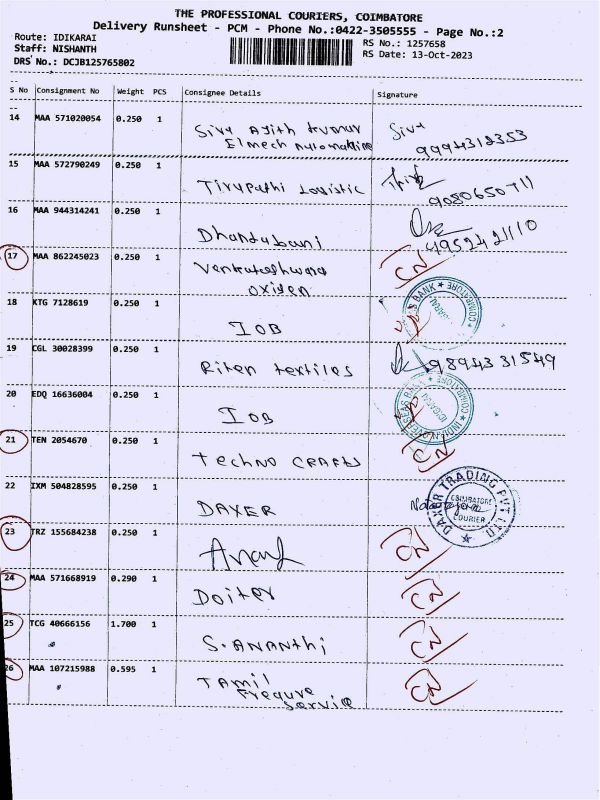 THE PROFESSIONAL COURIERS, COIMBATORE
Delivery Runsheet - PCM - Phone No.:0422-3505555 - Page No.:2
Route: IDIKARAI
RS No.: 1257658
Staff: NISHANTH
RS Date: 13-Oct-2023
DRS No.: DCJB125765802
S No Consignment No Weight PCS Consignee Details Signature
14 MAA 571020054 0.250 1 Siva Ajith kumar Siva
Elmech Automation 9994312353
15 MAA 572790249 0.250 1 Tirupathi Logistic
9080650711
16 MAA 944314241 0.250 1 Dhandabani
4952421110
17 MAA 862245023 0.250 1 Venkateshwara CN
oxigen
18 KTG 7128619 0.250 1 IOB
BANK ★ COIMBATORE
19 CGL 30028399 0.250 1 Riten textiles 9894331549
20 EDQ 16636004 0.250 1 IOB
INDIAN OVERSEAS BANK ★ COIMBATORE ★
IDIGARAI
21 TEN 2054670 0.250 1 Techno CRAFTS CN
22 IXM 504828595 0.250 1 DAXER
DAXER TRADING PVT LTD ★
COIMBATORE
COURIER
23 TRZ 155684238 0.250 1 Anand CN
24 MAA 571668919 0.290 1 Doiter CN
25 TCG 40666156 1.700 1 S.ANANthi CN
26 MAA 107215988 0.595 1 TAmil CN
Frequre
Service